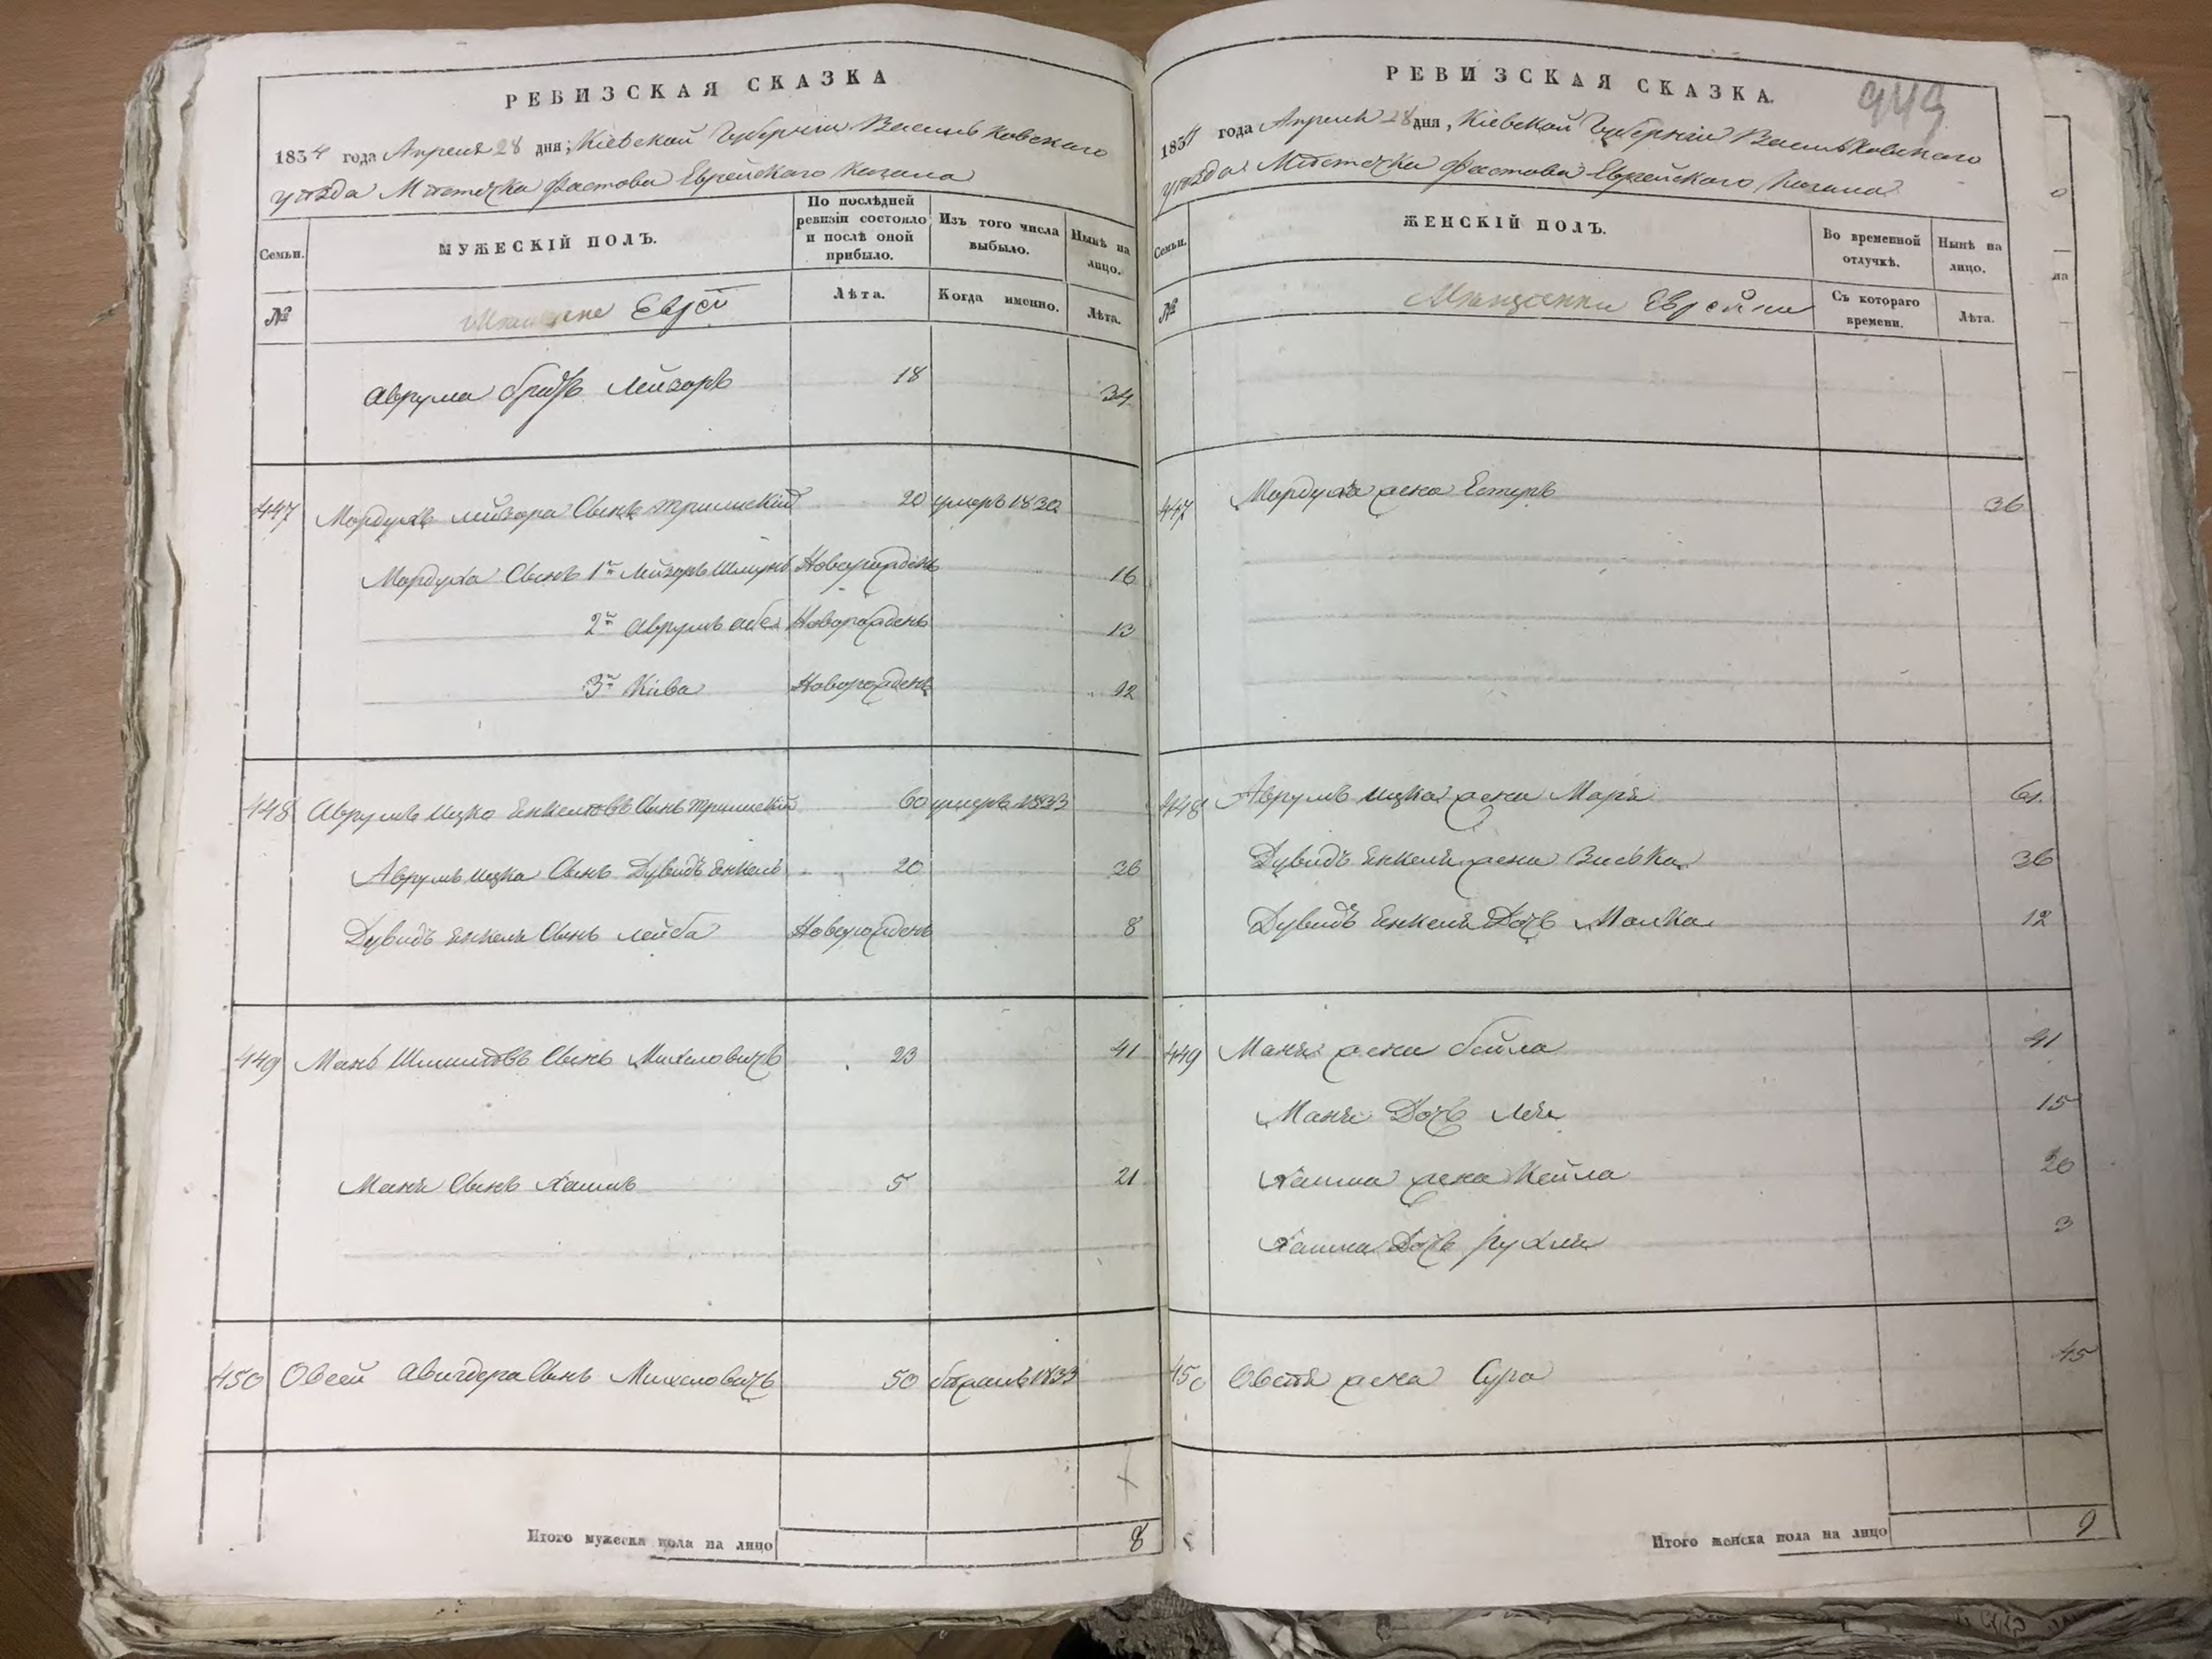 РЕВИЗСКАЯ СКАЗКА
1834 года Апреля 28 дня, Кіевской Губерніи Васильковскаго
уѣзда Мѣстечка Фастова Еврейскаго Кагала
Семьи.
МУЖЕСКІЙ ПОЛЪ.
По послѣдней ревизіи состояло и послѣ оной прибыло.
Изъ того числа выбыло.
Нынѣ на лицо.
№
Мѣщане Евреи
Лѣта.
Когда именно.
Лѣта.
Аврума братъ Лейзоръ 18 34
447 Мордухъ Лейзора Сынъ 20 умеръ 1830
Мордуха Сынъ 1й Лейзоръ Шмуль Новорожденъ 16
2й Аврумъ Аба Новорожденъ 13
3й Кива Новорожденъ 12
448 Аврумъ Ицко Енкелевъ Сынъ 60 умеръ 1833
Аврумъ Ицка Сынъ Дувидъ Енкель 20 36
Дувидъ Енкеля Сынъ Лейба Новорожденъ 8
449 Мань Сынъ Михеловичъ 23 41
Маня Сынъ Хаимъ 5 21
450 Овсей Авигдера Сынъ Михеловичъ 50 1833
Итого мужеска пола на лицо 8
РЕВИЗСКАЯ СКАЗКА.
949
1834 года Апреля 28 дня, Кіевской Губерніи Васильковскаго
уѣзда Мѣстечка Фастова Еврейскаго Кагала
Семьи.
ЖЕНСКІЙ ПОЛЪ.
Во временной отлучкѣ.
Нынѣ на лицо.
№
Мѣщанки Еврейки
Съ котораго времени.
Лѣта.
447 Мордуха жена Естеръ 36
448 Аврумъ Ицка жена Марія 61
Дувидъ Енкеля жена Виська 36
Дувидъ Енкеля Дочь Малка 12
449 Маня жена Бейла 41
Маня Дочь Лея 15
Хаима жена Кейла 20
Хаима Дочь Рухля 3
450 Овсея жена Сура 45
Итого женска пола на лицо 9